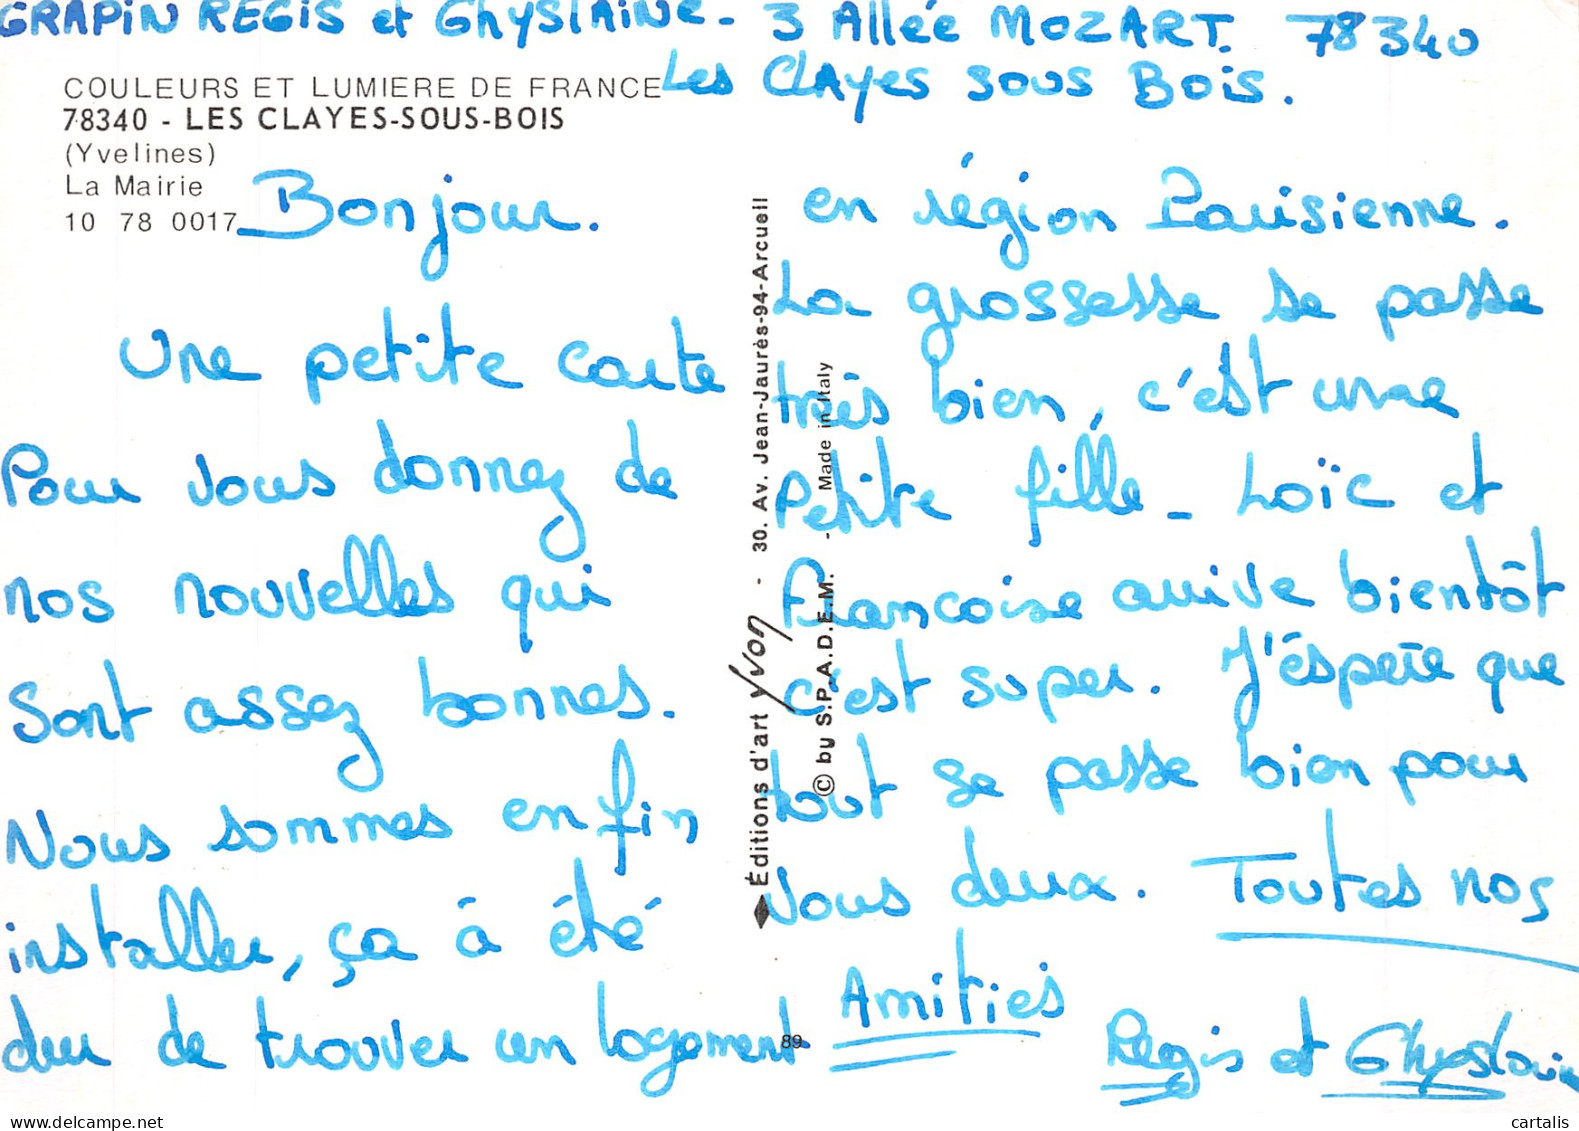 GRAPIN REGIS et GhySlAiNe - 3 Allée MOZART. 78340
Les Clayes sous Bois.
COULEURS ET LUMIERE DE FRANCE
78340 - LES CLAYES-SOUS-BOIS
(Yvelines)
La Mairie
10 78 0017
Bonjour.
Une petite carte
Pour vous donnez de
nos nouvelles qui
sont assez bonnes.
Nous sommes en fin
installer, ça à été
dur de trouver un logement
en région Parisienne.
La grossesse se passe
très bien, c'est une
Petite fille - Loïc et
Francoise arrive bientôt
c'est super. J'éspere que
tout se passe bien pour
vous deux. Toutes nos
Amitiés
Regis et Ghyslaine
Éditions d'art Yvon - 30. Av. Jean-Jaurès-94-Arcueil
© by S.P.A.D.E.M. - Made in Italy
89
www.delcampe.net
cartalis